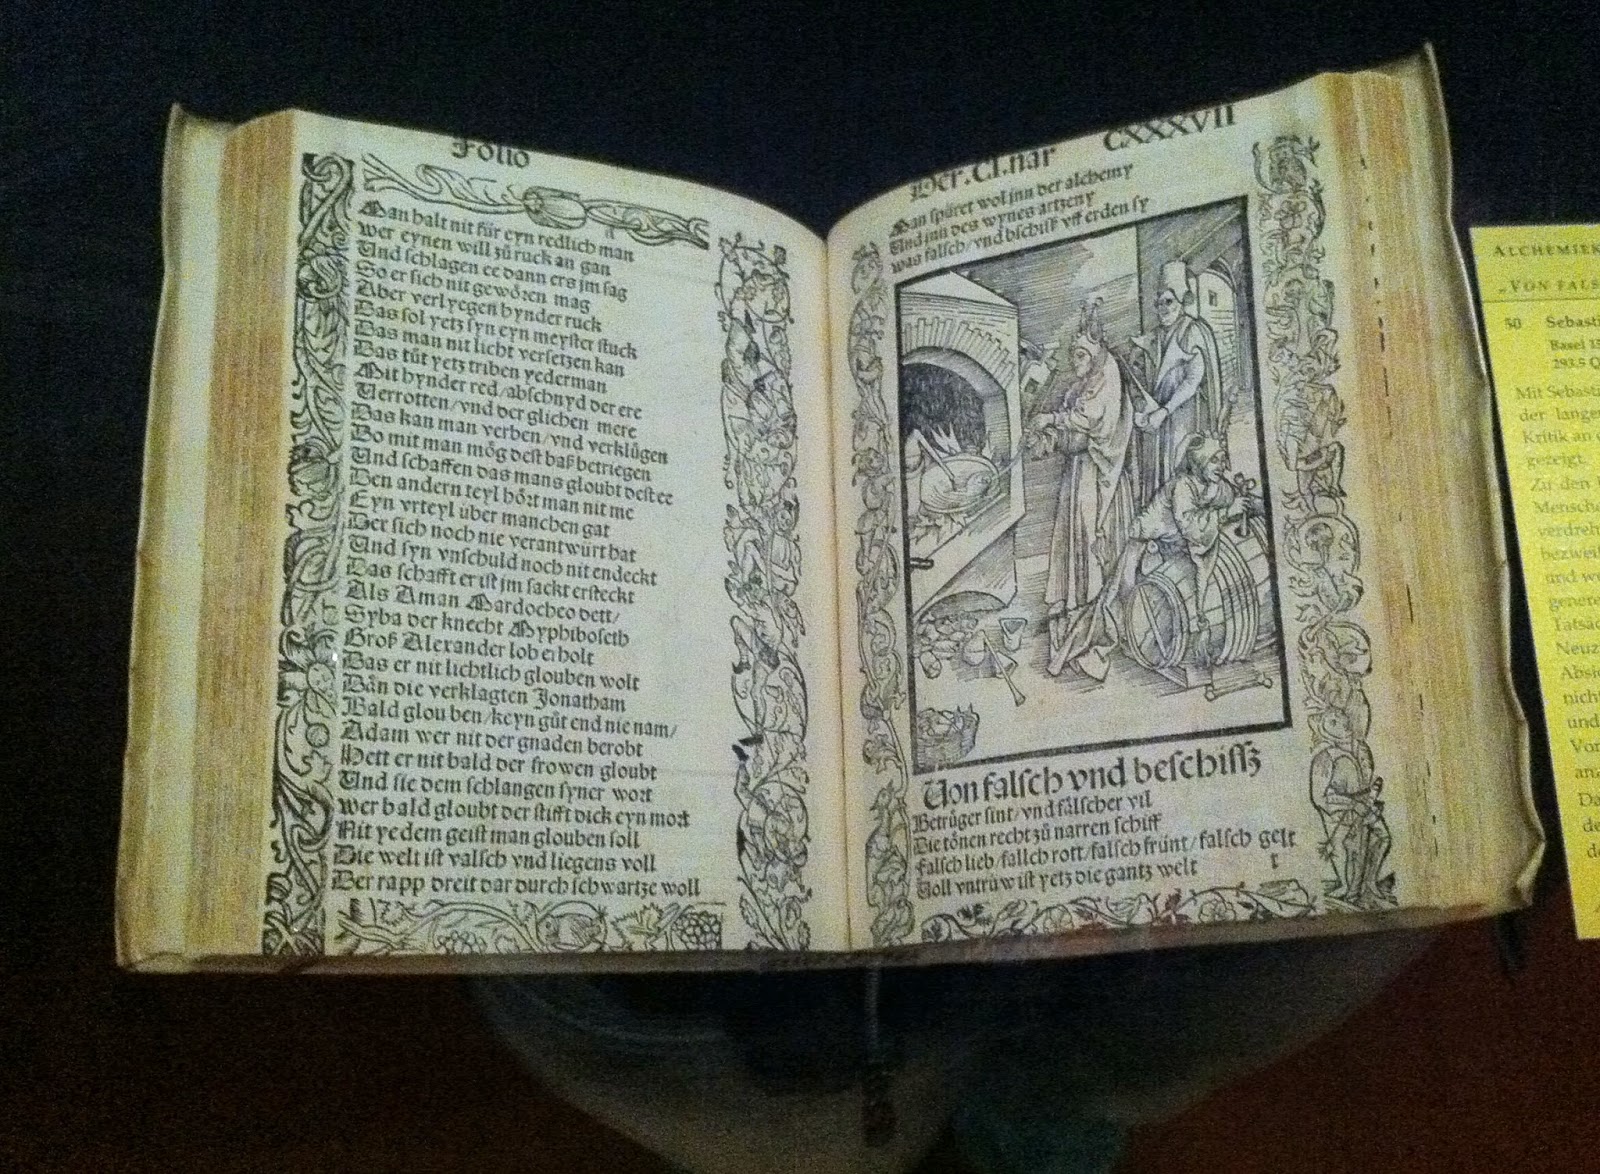 Folio
Man halt nit für eyn redlich man
wer eynen will zů ruck an gan
Und schlagen ee dann ers jm sag
So er sich nit gewören mag
Aber verlyegen hynder ruck
Das sol yetz syn eyn meyster stuck
Das man nit licht versetzen kan
Das tůt yetz triben yederman
Mit hynder red/abschnyd der ere
Verrotten/vnd der glichen mere
Das kan man verben/vnd verklügen
Do mit man mög dest baß betriegen
Und schaffen das mans gloubt dest ee
Den andern teyl hört man nit me
Eyn vrteyl über manchen gat
Der sich noch nie verantwürt hat
Und syn vnschuld noch nit endeckt
Das schafft er ist jm sackt ersteckt
Als Aman Mardocheo dett/
Syba der knecht Myphiboseth
Groß Alexander lob erholt
Das er nit lichtlich glouben wolt
Dån die verklagten Jonatham
Bald glouben/keyn gůt end nie nam/
Adam wer nit der gnaden berobt
Hett er nit bald der frowen gloubt
Und sie dem schlangen syner wort
wer bald gloubt der stifft dick eyn mort
Nit yedem geist man glouben soll
Die welt ist valsch vnd liegens voll
Der rapp dreit dar durch schwartze woll
CXXXVII
Der .CI. nar
Man spüret wol jnn der alchemy
Und jnn des wynes artzeny
was falsch/vnd bschiß vff erden sy
Von falsch vnd beschissz
Betrüger sint/vnd fälscher vil
Die tönen recht zů narren schiff
Falsch lieb/falsch rott/falsch fründt/falsch gelt
Voll vntrüw ist yetz die gantz welt
t
ALCHEMIEK
„VON FALS
50 Sebasti
Basel 15
293.5 Q
Mit Sebasti
der lange
Kritik an
gezeigt.
Zu den
Mensch
verdreh
bezwei
und w
genere
Tatsac
Neuz
Absi
nich
und
Vor
an
Da
de
d